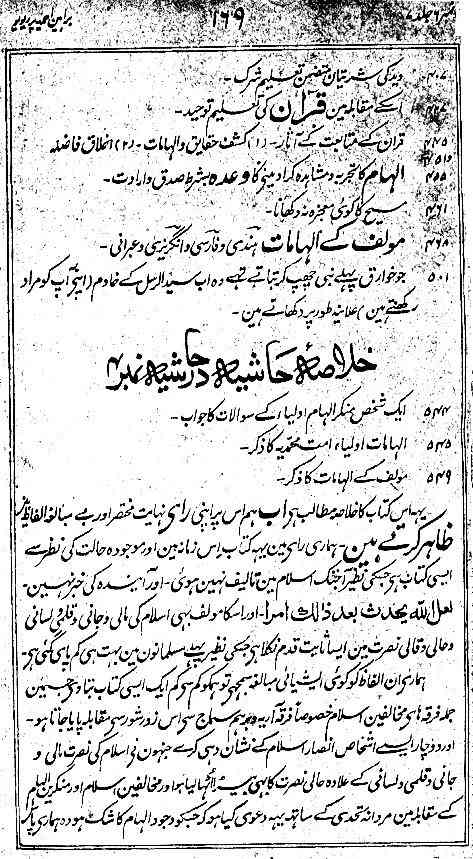 نمبر ۶ جلد ۷ ۱۶۹ براہین احمدیہ پر ریویو
۴۰۷ وید کی شرتیان متضمن تعلیم شرک۔
۴۲۷ اسکے مقابلہ مین قرآن کی تعلیم توحید۔
۴۴۵ قرآن کے متابعت کے آثار۔ (۱) کشف حقایق والہامات۔ (۲) اخلاق فاضلہ
۴۵۵ الہام کا تجربہ و مشاہدہ کرا دینی کا وعدہ بشرط صدق و ارادت۔
۴۶۱ مسیح کا کوئی معجزہ نہ دکھانا۔
۴۶۸ مولف کے الہامات ہندی و فارسی و انگریزی و عبرانی۔
۵۰۱ جو خوارق پہلے نبی چھپ کر بتاتے تھے وہ اب سید الرسل کے خادم (اپنے آپ کو مراد
رکھتے ہین) علانیہ طور پر دکھاتے ہین۔
خلاصہ حاشیہ در حاشیہ نمبر ۴
۵۴۴ ایک شخص منکر الہام اولیاء کے سوالات کا جواب۔
۵۴۵ الہامات اولیاء امت محمدیہ کا ذکر۔
۵۴۹ مولف کے الہامات کا ذکر۔
یہہ اس کتاب کا خلاصہ مطالب ہی اب ہم اس پر اپنی رای نہایت مختصر اور بے مبالغہ الفاظ مین
ظاہر کرتے ہین۔ ہماری رای مین یہہ کتاب اس زمانہ مین اور موجودہ حالت کی نظر سے
ایسی کتاب ہی جسکی نظیر آجتک اسلام مین تالیف نہین ہوئی۔ اور آیندہ کی خبر نہین۔
لعل اللہ یحدث بعد ذالک امرا۔ اور اسکا مولف بہی اسلام کی مالی و جانی و قلمی و لسانی
و حالی و قالی نصرت مین ایسا ثابت قدم نکلا ہی جسکی نظیر پہلے مسلمانون مین بہت ہی کم پائی گئی ہی۔
ہماری ان الفاظ کو کوئی ایشیائی مبالغہ سمجہی تو ہمکو کم سی کم ایک ایسی کتاب بتاوی جسمین
جملہ فرقہ ہای مخالفین اسلام خصوصاً فرقہ آریہ و برہم سماج سی اس زور شور سی مقابلہ پایا جاتا ہو۔
اور دو چار ایسے اشخاص انصار اسلام کے نشان دہی کرے جنہون نی اسلام کی نصرت مالی و
جانی و قلمی و لسانی کے علاوہ حالی نصرت کا بہی بیڑا اٹہا لیا ہو اور مخالفین اسلام اور منکرین الہام
کے مقابلہ مین مردانہ تحدی کے ساتہہ یہہ دعوی کیا ہو کہ جسکو وجود الہام کا شک ہو وہ ہماری پاس